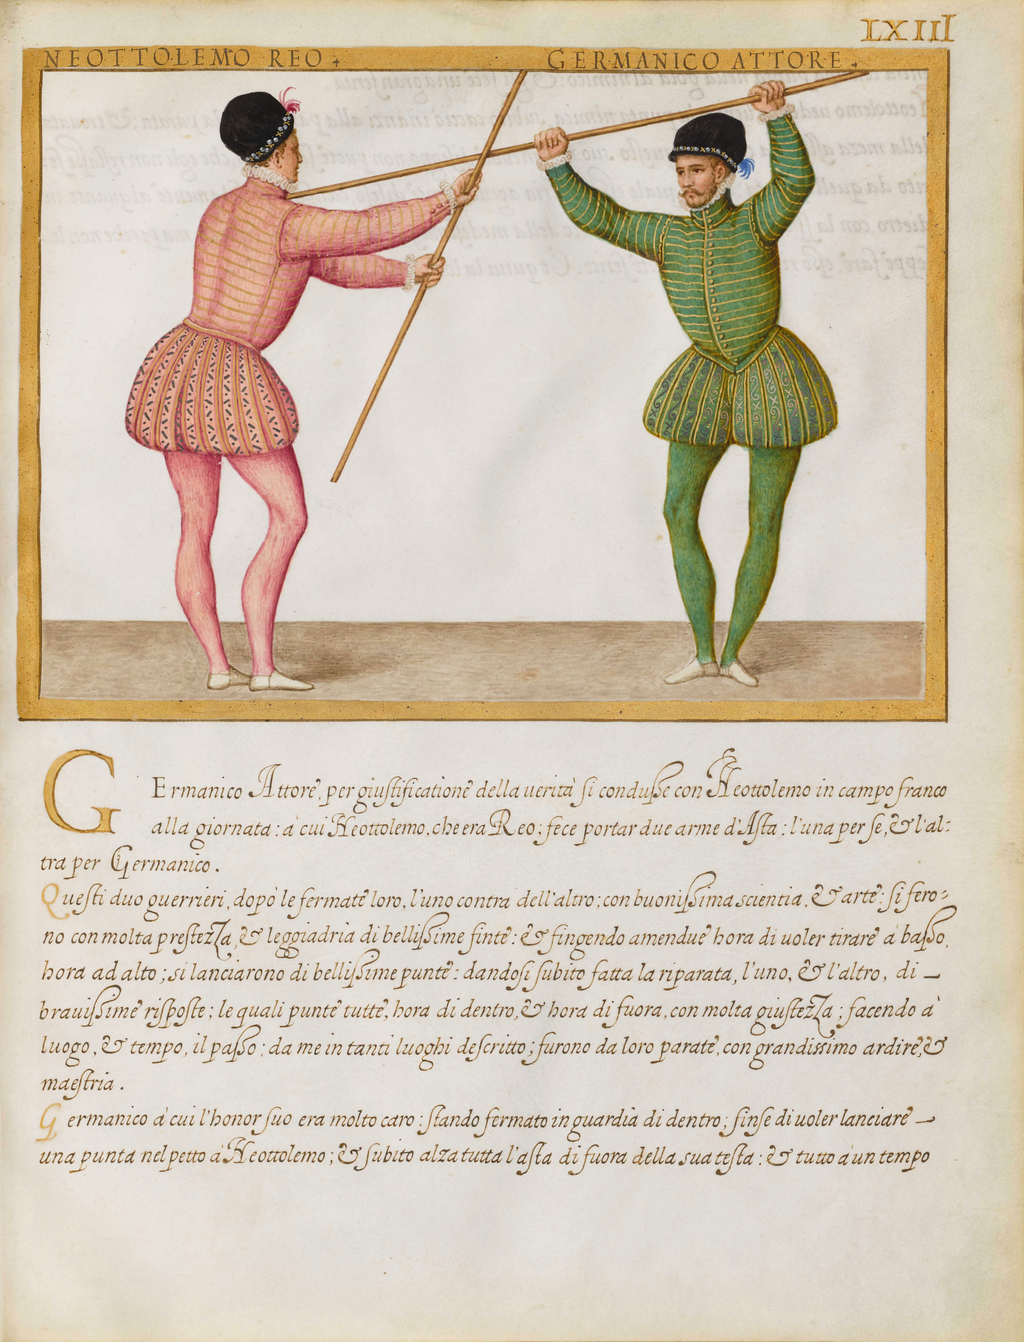 LXIII
NEOTTOLEMO REO
GERMANICO ATTORE
GErmanico Attore, per giustificatione della uerità si condusse con Neottolemo in campo franco
alla giornata: à cui Neottolemo, che era Reo; fece portar due arme d'Asta: l'una per se, & l'al:
tra per Germanico.
Questi duo guerrieri, dopò le fermate loro, l'uno contra dell'altro; con buonissima scientia, & arte: si fero=
no con molta prestezza, & leggiadria di bellissime finte: & fingendo amendue hora di uoler tirare à basso,
hora ad alto; si lanciarono di bellissime punte: dandosi subito fatta la riparata, l'uno, & l'altro, di
brauissime risposte; le quali punte tutte, hora di dentro, & hora di fuora, con molta giustezza; facendo à
luogo, & tempo, il passo; da me in tanti luoghi descritto; furono da loro parate, con grandissimo ardire, &
maestria.
Germanico à cui l'honor suo era molto caro; stando fermato in guardia di dentro; finse di uoler lanciare
una punta nel petto à Neottolemo; & subito alza tutta l'asta di fuora della sua testa: & tutto à un tempo